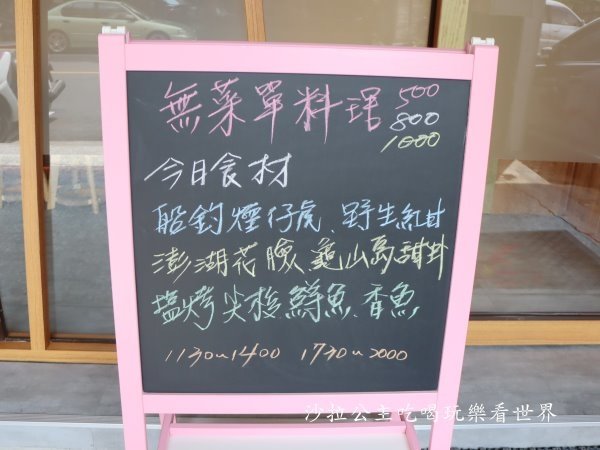 無菜單料理 500
800
1000
今日食材
船釣煙仔虎、野生紅魽
澎湖花臉、龜山島甜蝦
塩烤尖梭鱘魚、香魚
1130~1400 1730~2000
沙拉公主吃喝玩樂看世界